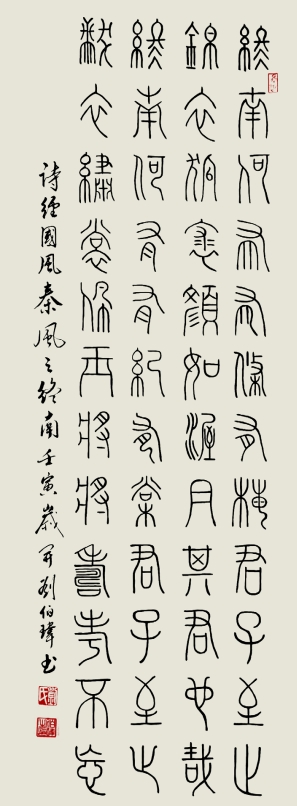 終南何有有條有梅君子至止
錦衣狐裘顏如渥丹其君也哉
終南何有有紀有棠君子至止
黻衣繡裳佩玉將將壽考不忘
詩經國風秦風之終南壬寅歲开劉伯瑋书